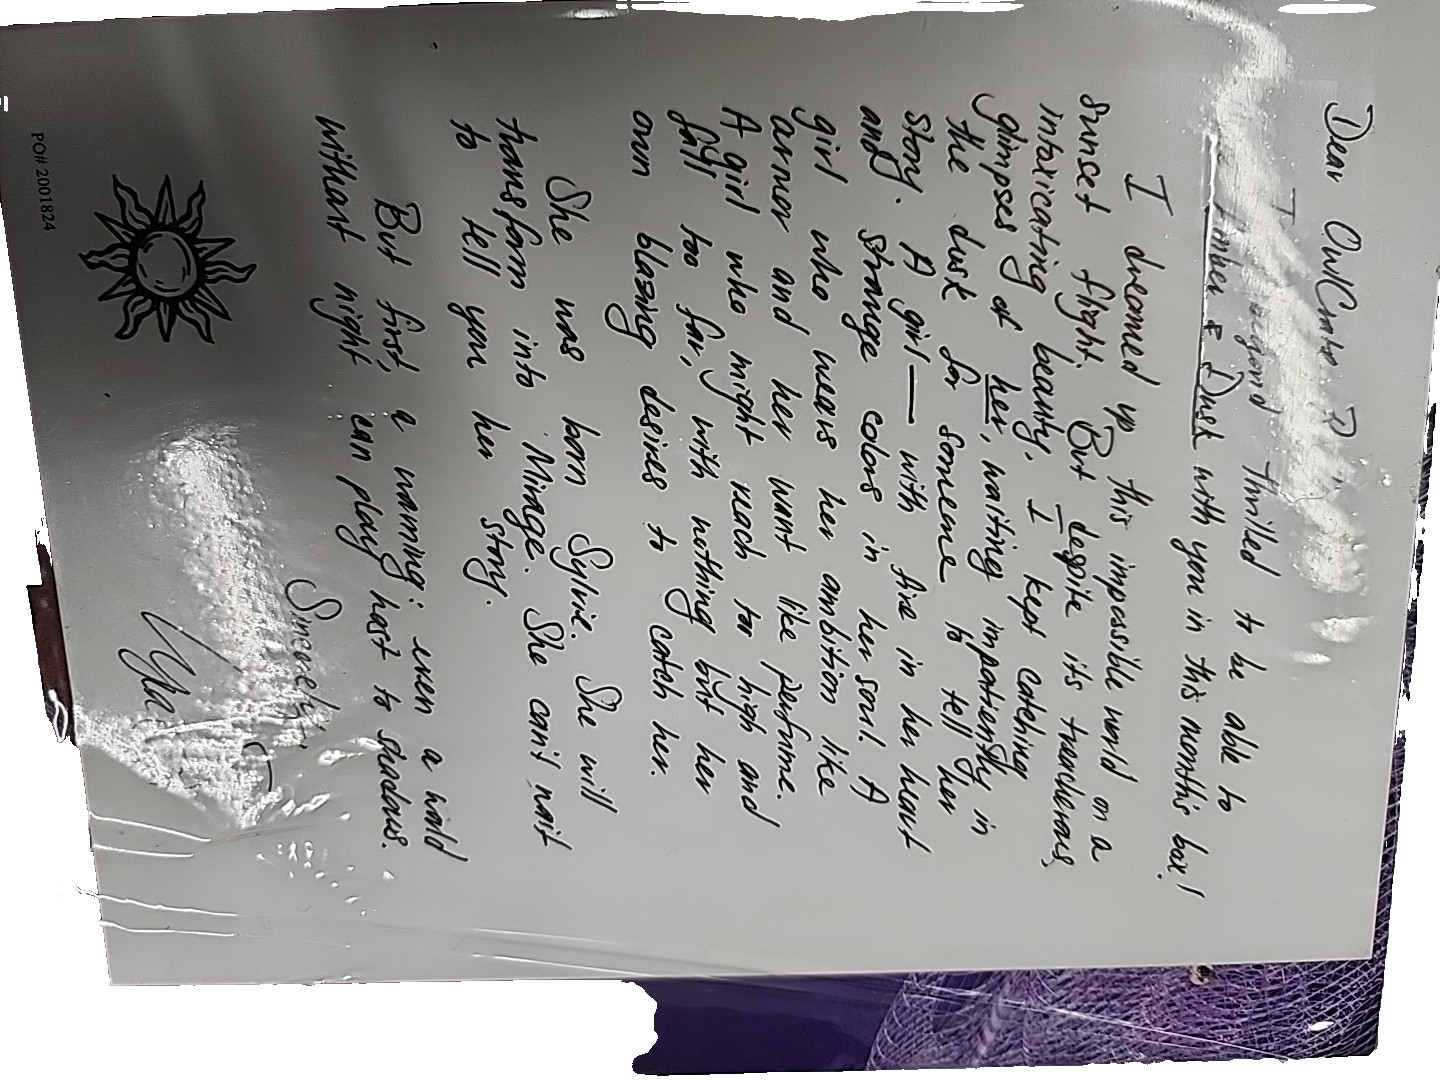 Dear OwlCrate
thrilled to be able to
Amber & Dusk with you in this month's box!
I dreamed up this impossible world on a
sunset flight. But despite its treacherous,
intoxicating beauty, I kept catching
glimpses of her, waiting impatiently in
the dusk for someone to tell her
story. A girl — with fire in her heart
and strange colors in her soul. A
girl who wears her ambition like
armor and her want like perfume.
A girl who might reach too high and
fall too far, with nothing but her
own blazing desires to catch her.
She was born Sylvie. She will
transform into Mirage. She can't wait
to tell you her story.
But first, a warning: even a world
without night can play host to shadows.
Sincerely,
Lyra
PO# 2001824